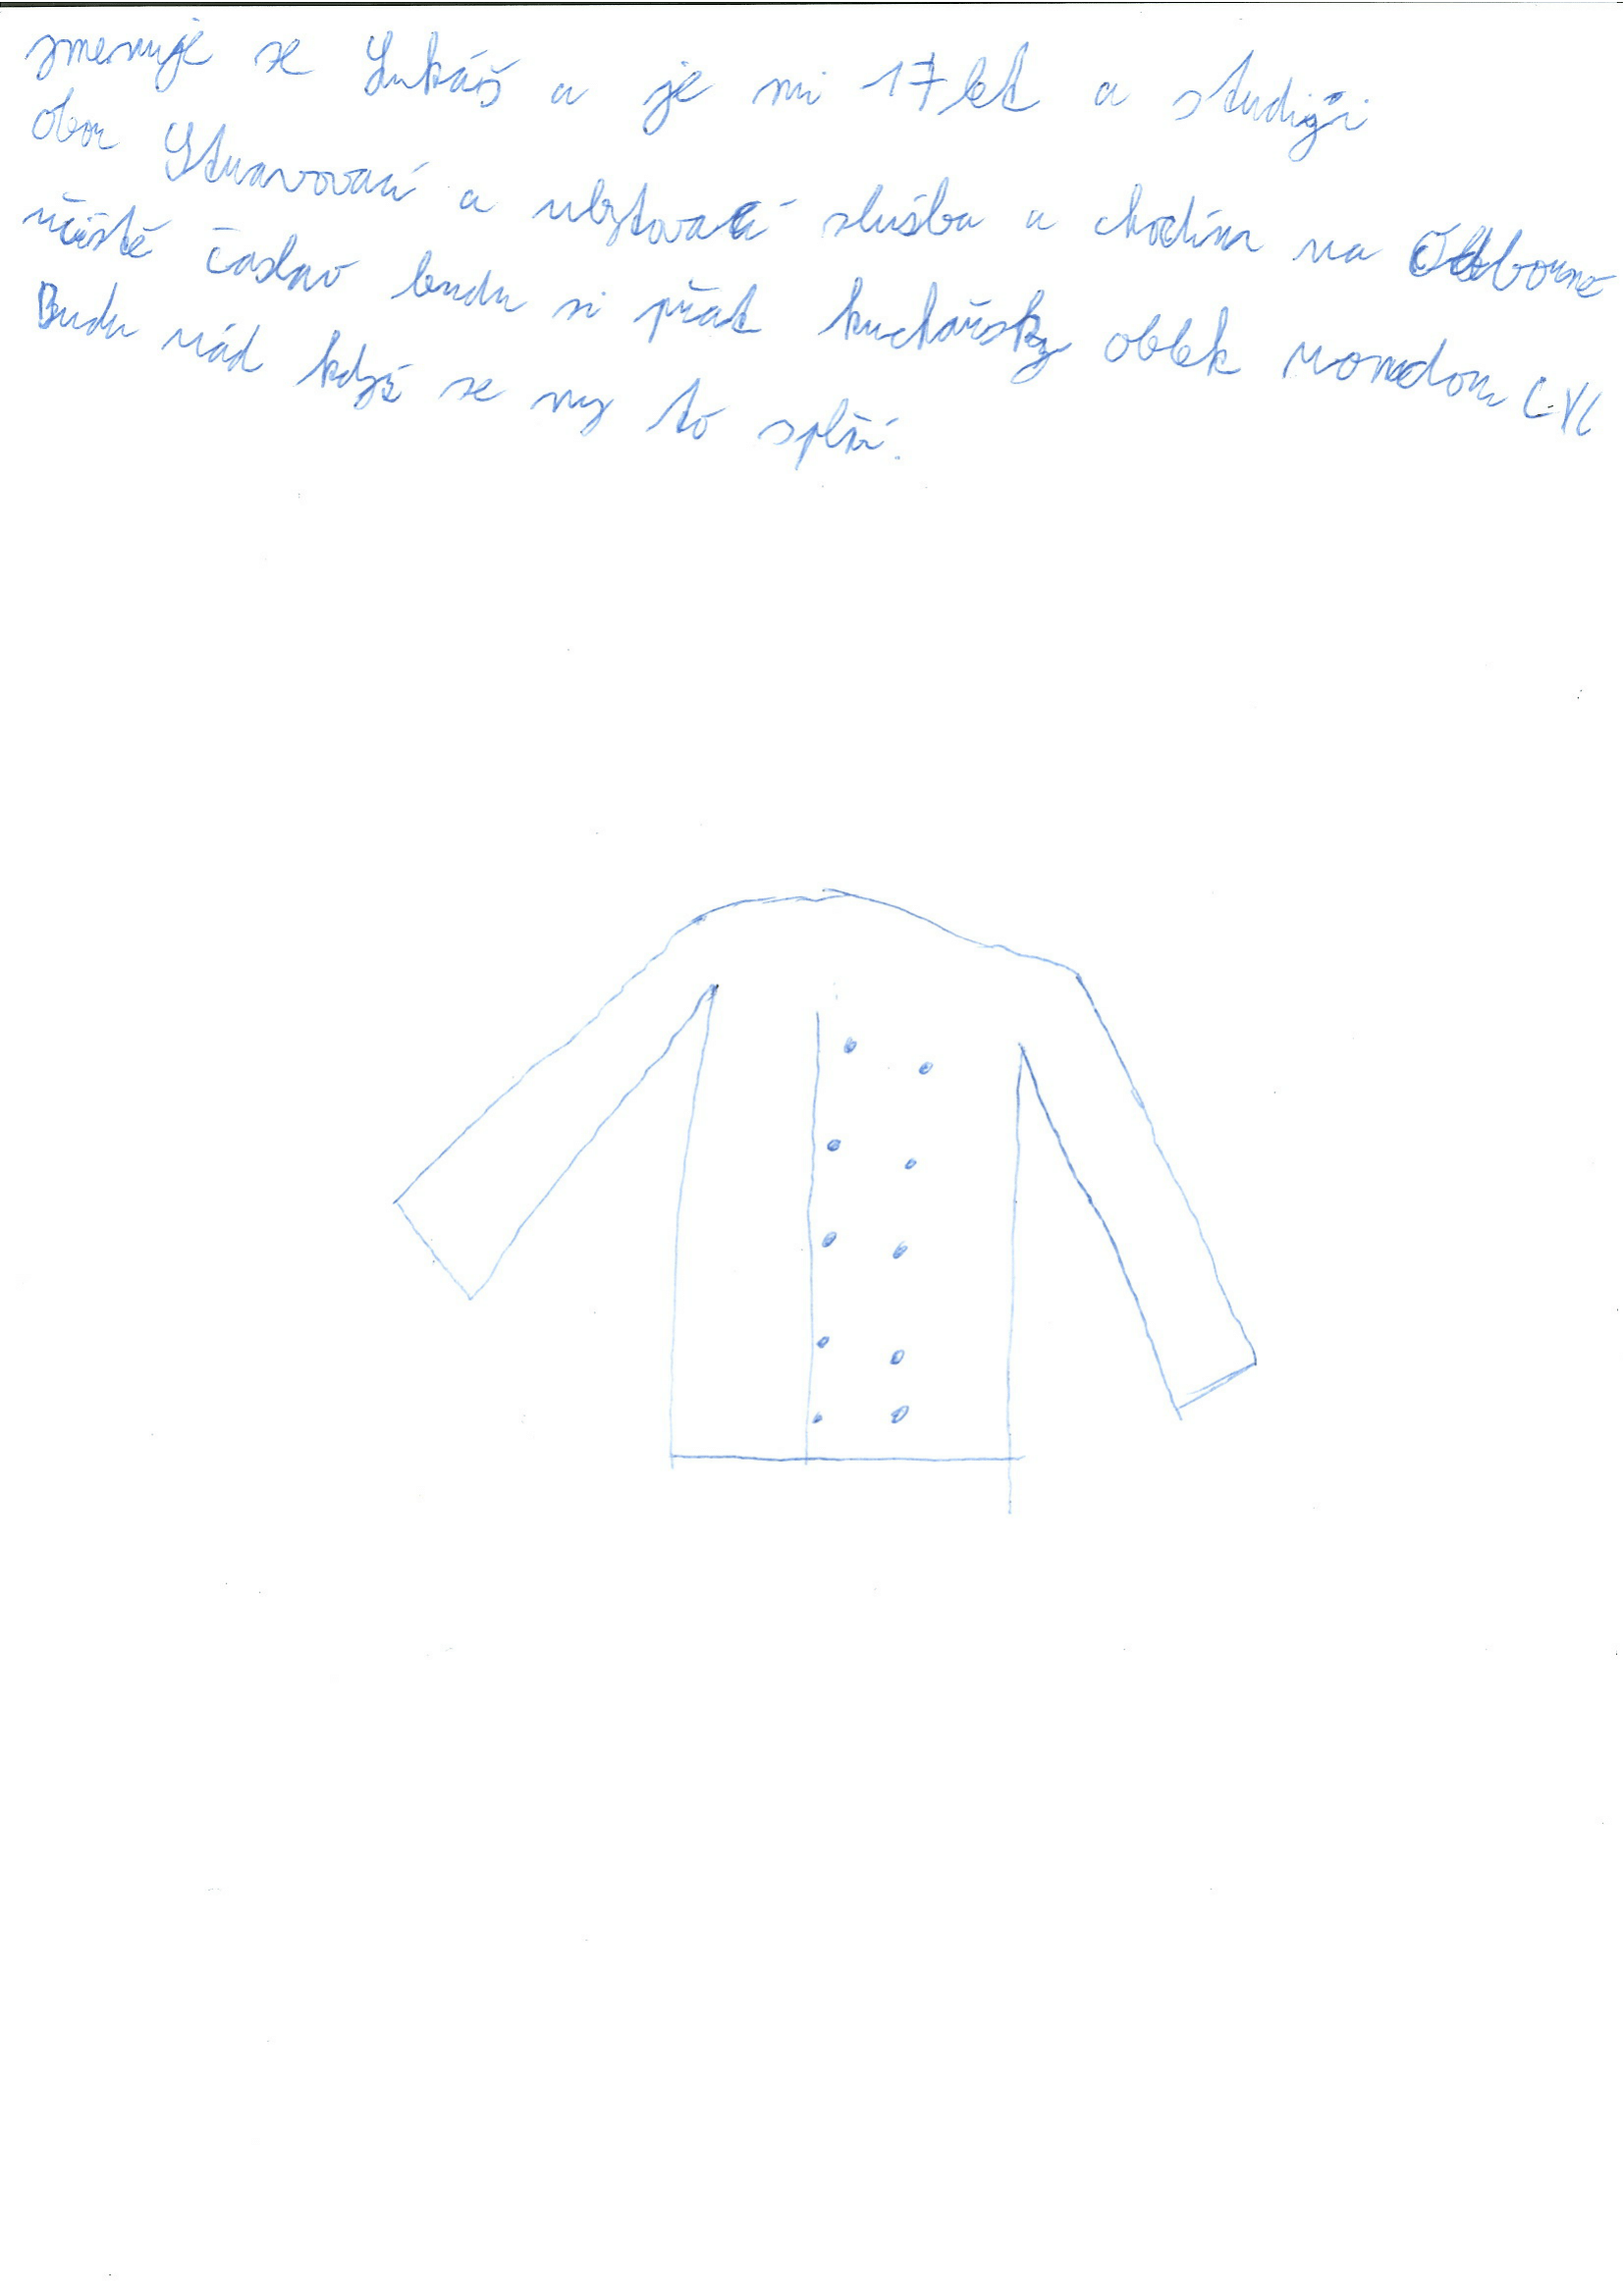 jmenuje se Lukáš a je mi 17 let a studiji
obor Stravovací a ubytovací slušba a chodím na Odborné
účiště časlav budu si přát kuchařsky oblek rondon XL
Budu rád když se my to splní.